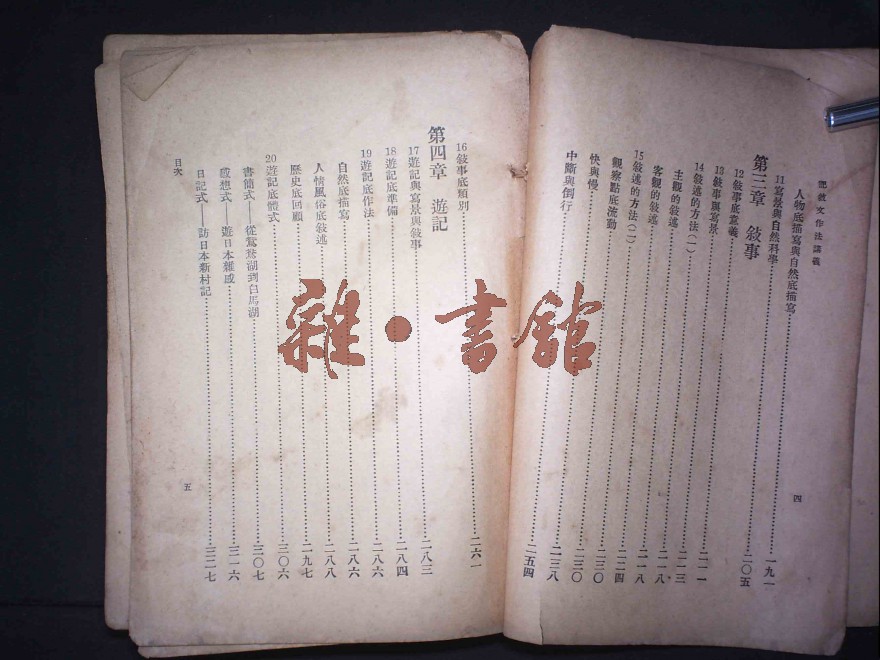 敘文作法講義
人物底描寫與自然底描寫……一九一
11寫景與自然科學……二〇五
第三章 敍事
12敍事底意義……二一一
13敍事與寫景……二一三
14敍述的方法(一)……二一八
主觀的敍述……二一八
客觀的敍述……二二四
15敍述的方法(二)……二三〇
觀察點底流動……二三〇
快與慢……二三八
中斷與倒行……二五四
四
16敍事底類別……二六一
第四章 遊記
17遊記與寫景與敍事……二八三
18遊記底準備……二八四
19遊記底作法……二八六
自然底描寫……二八六
人情風俗底敍述……二八八
歷史底回顧……二九七
20遊記底體式……三〇六
書簡式——從鴛鴦湖到白馬湖……三〇七
感想式——遊日本雜感……三一六
日記式——訪日本新村記……三二七
目次
五
雜·書館